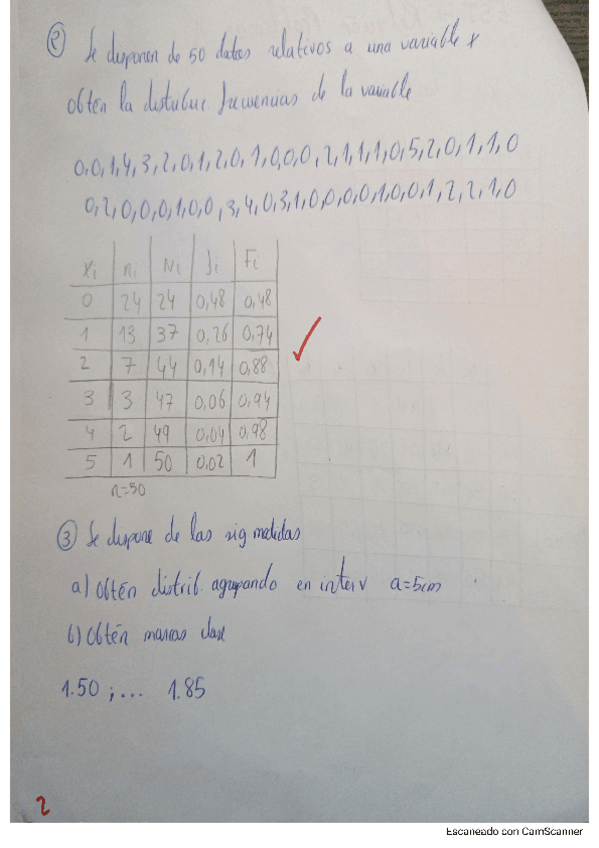 ② Se disponen de 50 datos relativos a una variable x
obtén la distribuc frecuencias de la variable
0,0,1,4,3,2,0,1,2,0,1,0,0,0,2,1,1,1,0,5,2,0,1,1,0
0,2,0,0,0,1,0,0,3,4,0,3,1,0,0,0,0,1,0,0,1,2,2,1,0
xi ni Ni fi Fi
0 24 24 0,48 0,48
1 13 37 0,26 0,74
2 7 44 0,14 0,88
3 3 47 0,06 0,94
4 2 49 0,04 0,98
5 1 50 0.02 1
n=50
③ Se dispone de las sig medidas
a) Obtén distrib. agrupando en interv a=5cm
b) Obtén marcas clase
1.50 ; ... 1.85
2
Escaneado con CamScanner